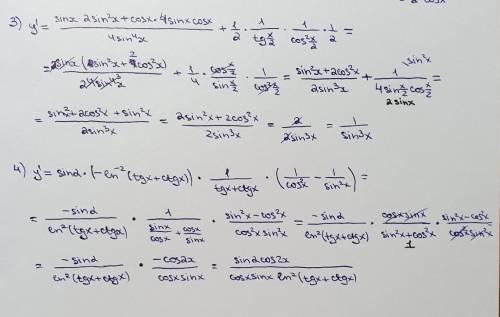 3) y' = (sinx · 2sin²x + cosx · 4sinx cosx)/(4sin⁴x) + 1/2 · 1/(tg x/2) · 1/(cos² x/2) · 1/2 =
= (2sinx (sin²x + 2cos²x))/(4sin⁴x) + 1/4 · (cos x/2)/(sin x/2) · 1/(cos² x/2) = (sin²x + 2cos²x)/(2sin³x) + 1/(4sin x/2 cos x/2) =
sin²x
2sinx
= (sin²x + 2cos²x + sin²x)/(2sin³x) = (2sin²x + 2cos²x)/(2sin³x) = 2/(2sin³x) = 1/(sin³x)
4) y' = sinα · (-ln⁻²(tgx + ctgx)) · 1/(tgx + ctgx) · (1/(cos²x) - 1/(sin²x)) =
= (-sinα)/(ln²(tgx + ctgx)) · 1/(sinx/cosx + cosx/sinx) · (sin²x - cos²x)/(cos²x sin²x) = (-sinα)/(ln²(tgx + ctgx)) · (cosx sinx)/(sin²x + cos²x) · (sin²x - cos²x)/(cos²x sin²x)
1
= (-sinα)/(ln²(tgx + ctgx)) · (-cos2x)/(cosx sinx) = (sinα cos2x)/(cosx sinx ln²(tgx + ctgx))